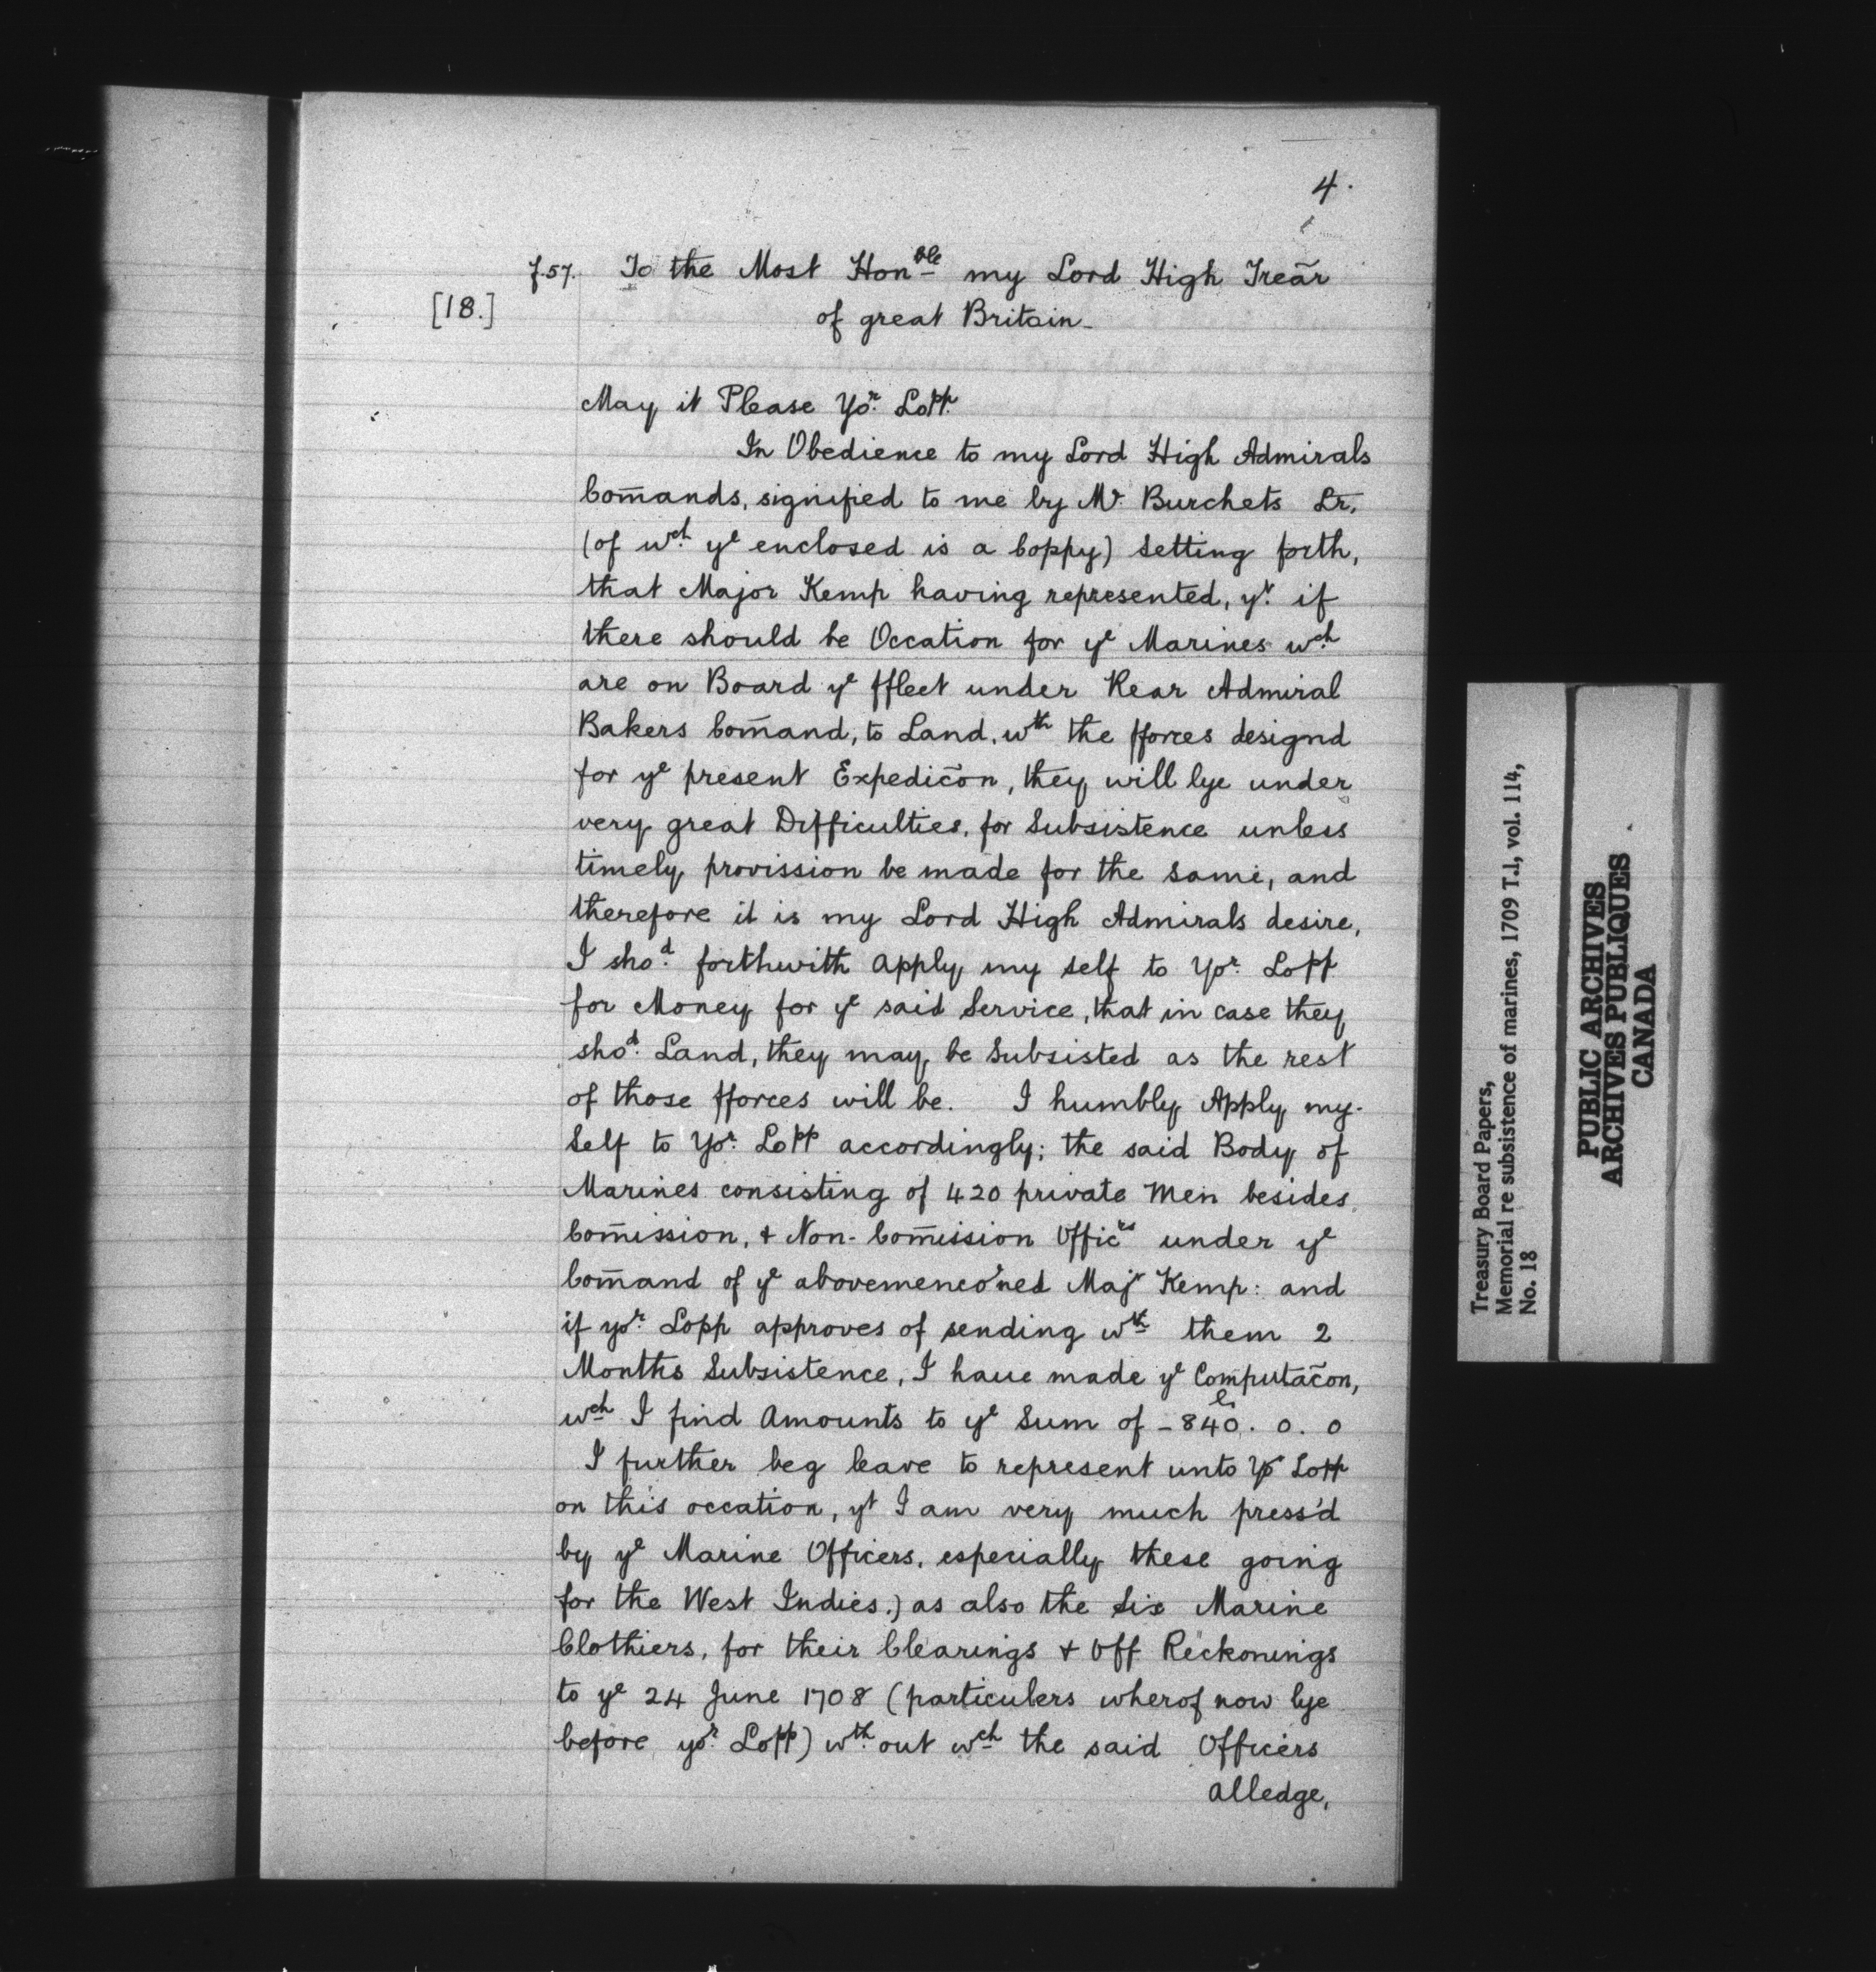 4.
f.57. To the Most Honble my Lord High Treãr
[18.]
of great Britain-
May it Please Yor. Lopp.
In Obedience to my Lord High Admirals
Com̃ands, signified to me by Mr. Burchets Lr,
(of wch. ye enclosed is a Coppy) Setting forth,
that Major Kemp having represented, yt. if
there should be Occation for ye Marines wch
are on Board ye ffleet under Rear Admiral
Bakers Com̃and, to Land, wth the fforces designd
for ye present Expedicõn, they will lye under
very great Difficulties, for Subsistence unless
timely provission be made for the Same, and
therefore it is my Lord High Admirals desire,
I shod. forthwith apply my self to Yor. Lopp
for Money for ye said Service, that in case they
shod. Land, they may be Subsisted as the rest
of those fforces will be. I humbly Apply my-
Self to Yor. Lopp accordingly; the said Body of
Marines consisting of 420 private Men besides
Com̃ission, & Non-Com̃ission Officrs under ye
Com̃and of ye abovemenco'ned Majr Kemp: and
if yor. Lopp approves of sending wth them 2
Months Subsistence, I haue made ye Computacõn,
wch I find Amounts to ye Sum of - 840li. 0. 0
I further beg leave to represent unto Yor Lopp
on this occation, yt I am very much press'd
by ye Marine Officers, especially these going
for the West Indies,) as also the Six Marine
Clothiers, for their Clearings & Off Reckonings
to ye 24 June 1708 (particulers wherof now lye
before yor. Lopp) wth.out wch the said Officers
alledge,
Treasury Board Papers,
Memorial re subsistence of marines, 1709 T.1, vol. 114,
No. 18
PUBLIC ARCHIVES
ARCHIVES PUBLIQUES
CANADA